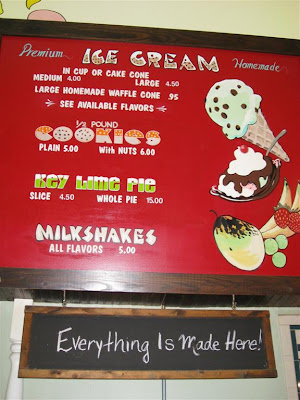 Premium ICE CREAM Homemade
IN CUP OR CAKE CONE
MEDIUM 4.00 LARGE 4.50
LARGE HOMEMADE WAFFLE CONE .95
~ SEE AVAILABLE FLAVORS ~
1/2 POUND
COOKIES
PLAIN 5.00 With NUTS 6.00
KEY LIME PIE
SLICE 4.50 WHOLE PIE 15.00
MILKSHAKES
ALL FLAVORS 5.00
Everything Is Made Here!